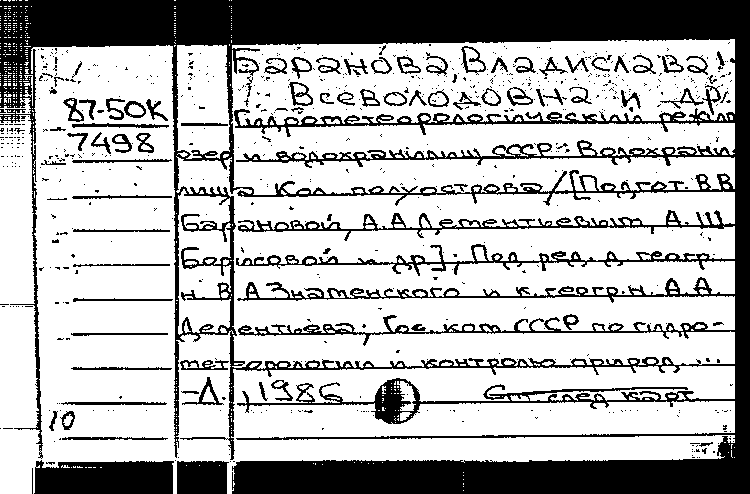 Баранова, Владислава
Всеволодовна и др.
87-50К
7498
Гидрометеорологический режим
озер и водохранилищ СССР: Водохрани-
лища Кол. полуострова / [Подгот. В.В.
Барановой, А.А. Дементьевым, А.Ш.
Борисовой и др]; Под ред. д. геогр.
н В А Знаменского и к. геогр. н. А.А.
Дементьева; Гос. ком. СССР по гидро-
метеорологии и контролю природ. ...
-Л., 1986
См след карт
10